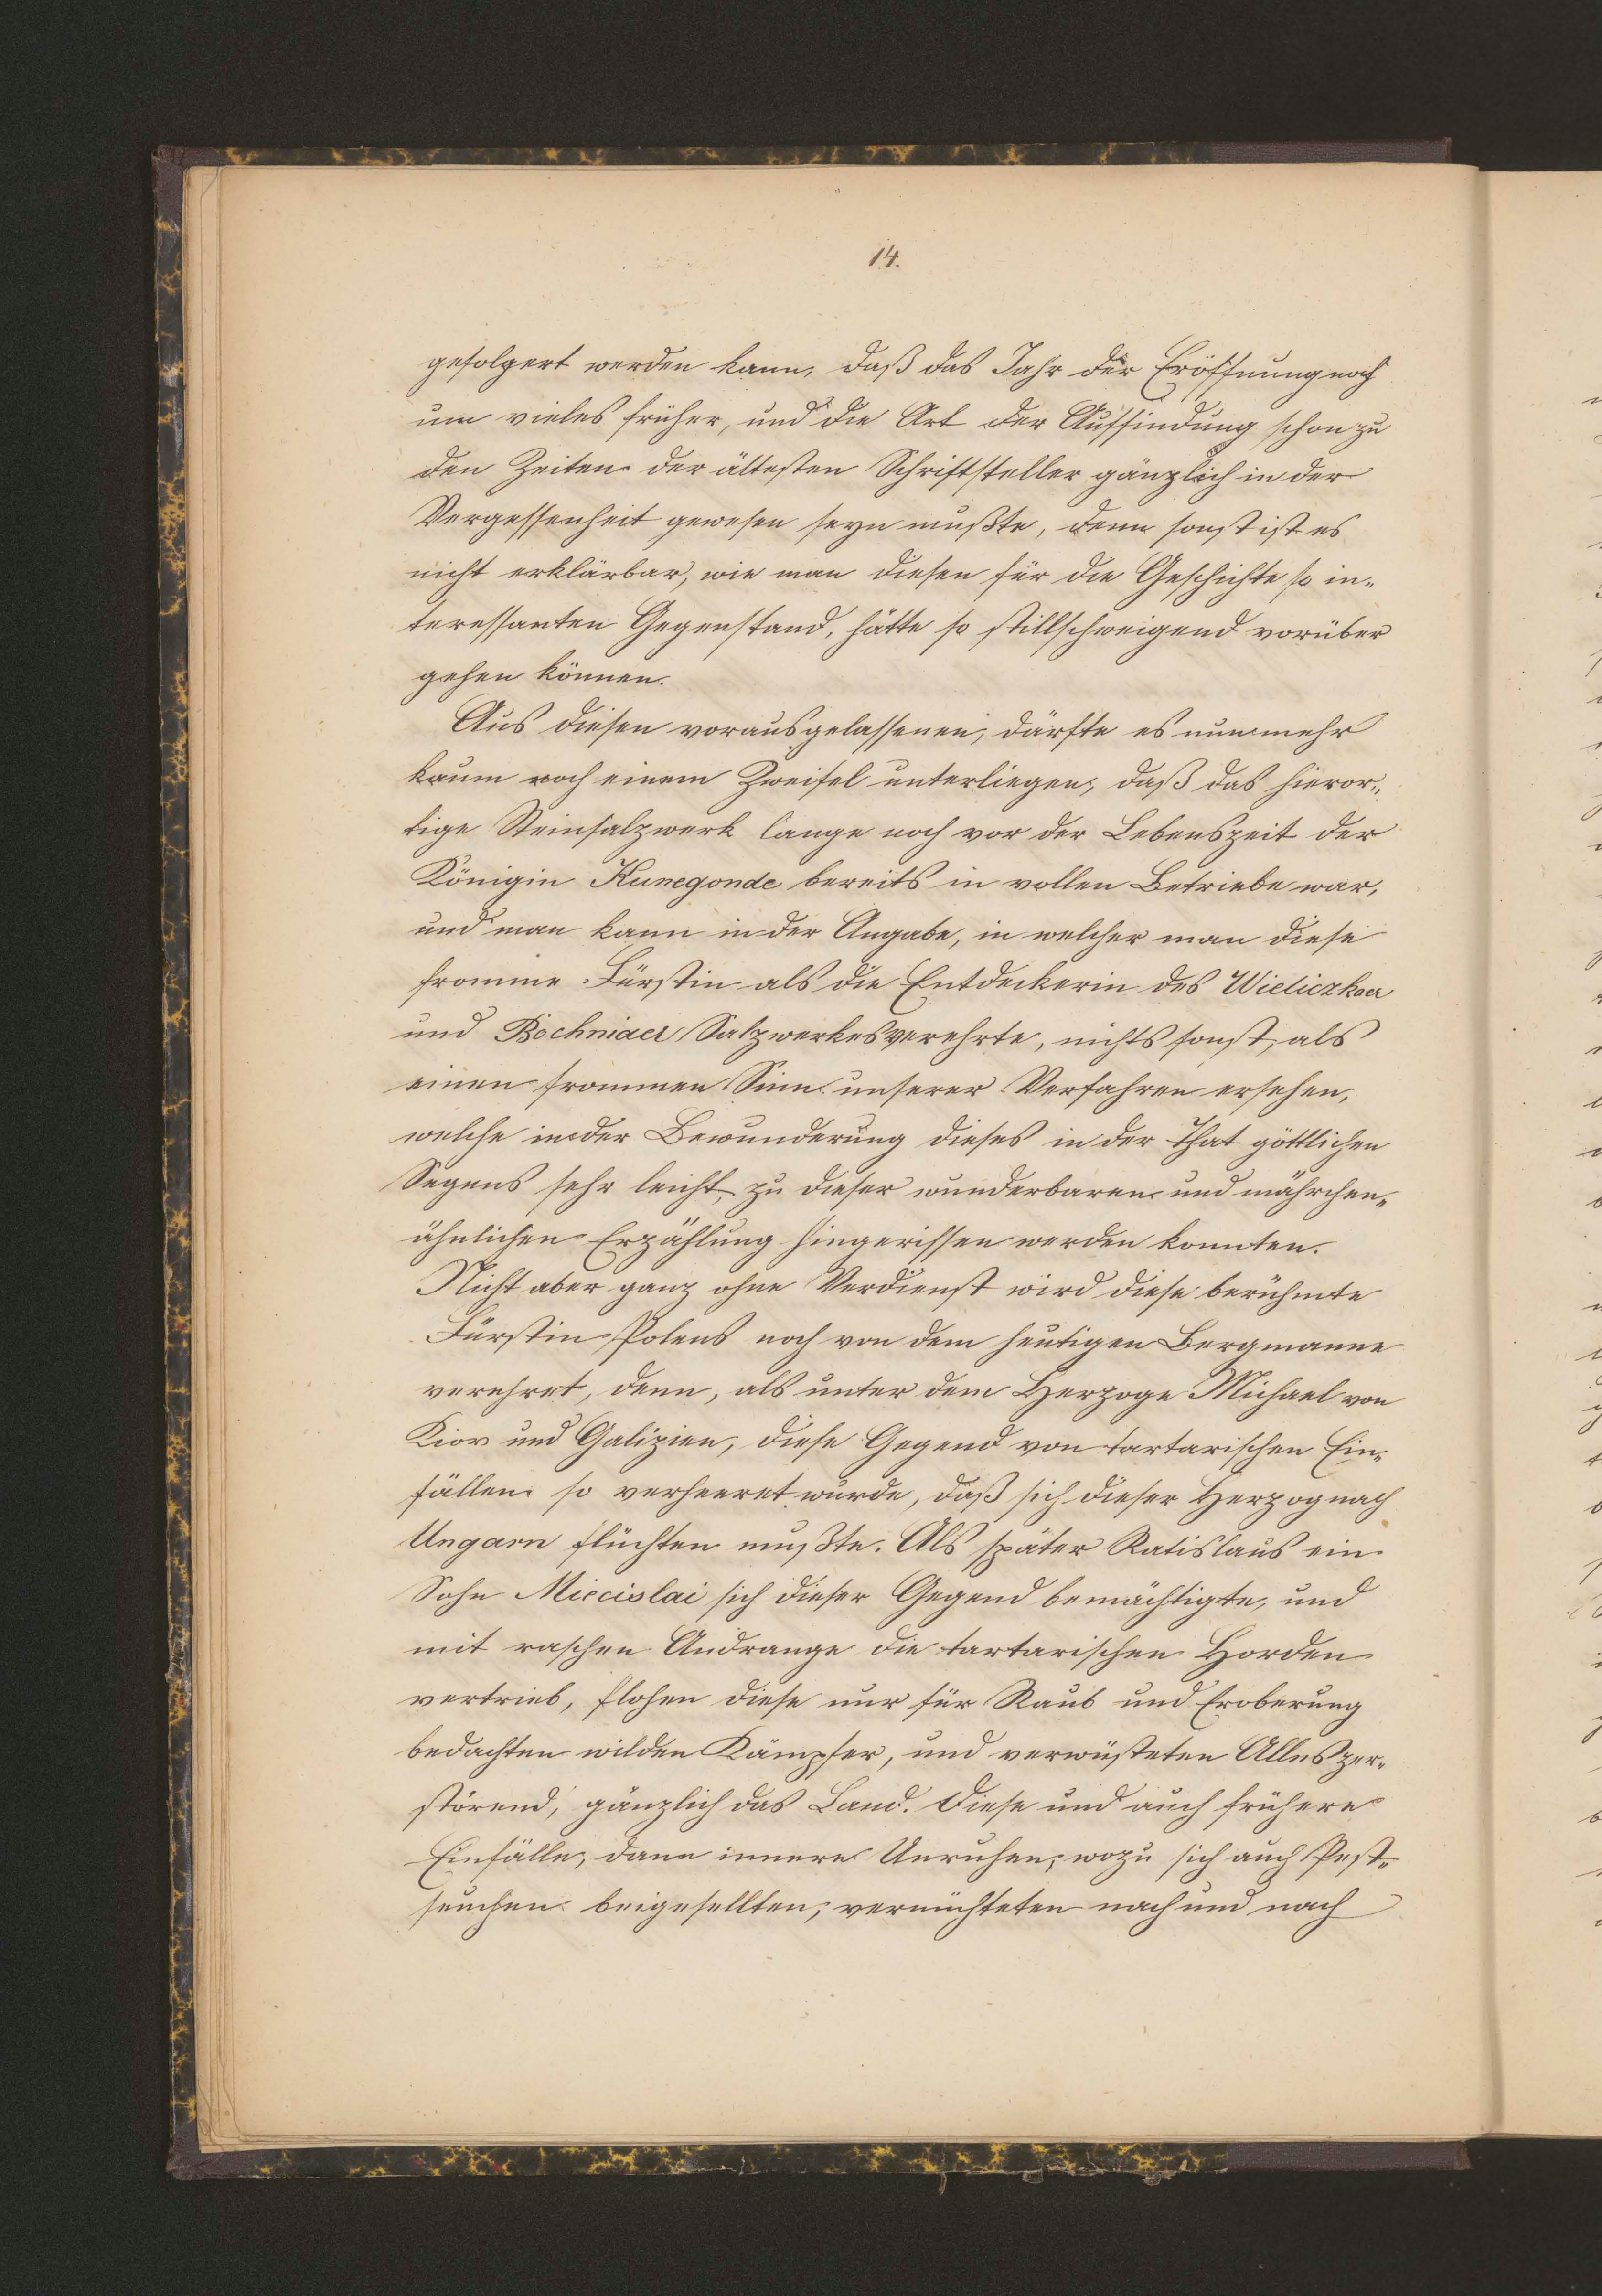 14.
gefolgert werden kann, daß das Jahr der Eröffnung noch
um vieles früher, und die Art der Auffindung schon zu
den Zeiten der ältesten Schriftsteller gänzlich in der
Vergessenheit gewesen seyn mußte, denn sonst ist es
nicht erklärbar, wie man diesen für die Geschichte so in„
teressanten Gegenstand, hätte so stillschweigend vorüber
gehen können.
Aus diesen vorausgelassenen, därfte es nunmehr
kaum noch einem Zweifel unterliegen, daß das hieror„
tige Steinsalzwerk lange noch vor der Lebenszeit der
Königin Kunegonde bereits in vollen Betriebe war,
und man kann in der Angabe, in welcher man diese
fromme Fürstin als die Entdeckerin des Wieliczkaer
und Bochniaer Salzwerkes verehrte, nichts sonst, als
einen frommen Sinn unserer Verfahren ersehen,
welche in der Bewunderung dieses in der That göttlichen
Segens sehr leicht zu dieser wunderbaren und mährchen„
ähnlichen Erzählung hingerissen werden konnten.
Nicht aber ganz ohne Verdienst wird diese berühmte
Fürstin Polens noch von dem heutigen Bergmanne
verehret, denn, als unter dem Herzoge Michael von
Kiov und Galizien, diese Gegend von tartarischen Ein„
fällen so verheeret wurde, daß sich dieser Herzog nach
Ungarn flüchten mußte. Als später Ratislaus ein
Sohn Miecislai sich dieser Gegend bemächtigte, und
mit raschen Andrange die tartarischen Horden
vertrieb, flohen diese nur für Raub und Eroberung
bedachten wilden Kämpfer, und verwüsteten Alles zer„
störend, gänzlich das Land. Diese und auch frühere
Einfälle, dann innere Unruhen, wozu sich auch Pest„
seuchen beigesellten, vernichteten nach und nach